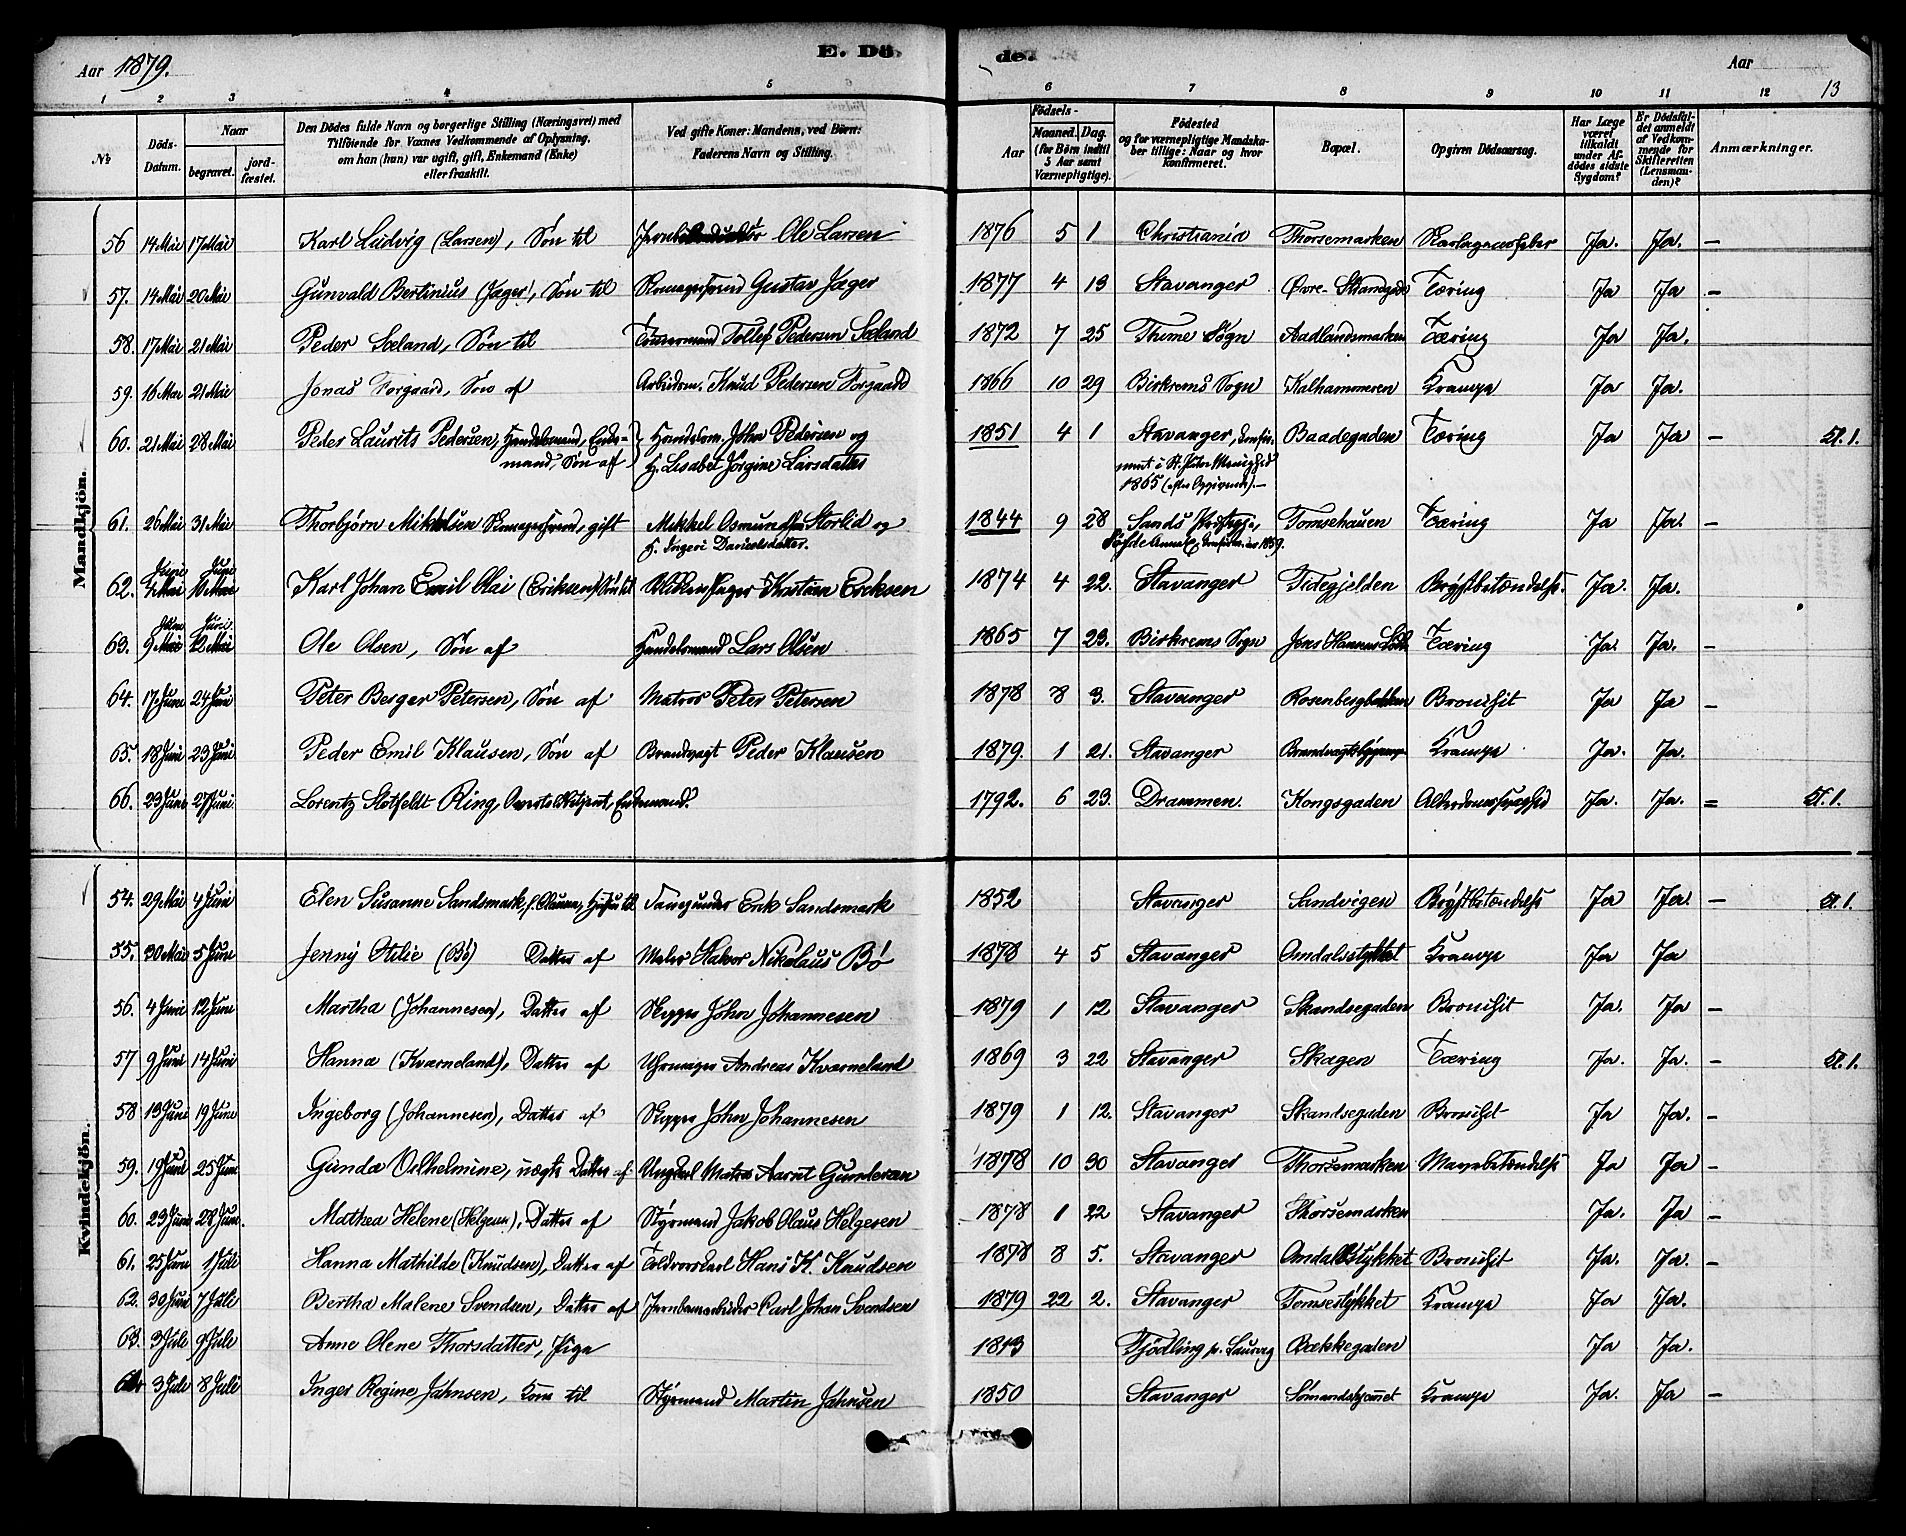 Aar 1879. E. Dö- de. Aar
13
1 2 3 4 5 6 7 8 9 10 11 12
№ Döds-Datum. Naar begravet. jord-fæstet. Den Dödes fulde Navn og borgerlige Stilling (Næringsvei) med Tilföiende for Voxnes Vedkommende af Oplysning, om han (hun) var ugift, gift, Enkemand (Enke) eller fraskilt. Ved gifte Koner: Mandens, ved Börn: Faderens Navn og Stilling. Födsels- Aar Maaned. Dag. (for Börn indtil 5 Aar samt Værnepligtige). Födested og for værnepligtige Mandskaber tillige: Naar og hvor konfirmeret. Bopæl. Opgiven Dödsaarsag. Har Læge været tilkaldt under Afdödes sidste Sygdom? Er Dödsfaldet anmeldt af Vedkommende for Skifteretten (Lensmanden)? Anmærkninger.
Mandkjön.
56 14 Mai 17 Mai Karl Ludvig (Larsen), Søn til Ole Larsen 1876 5 1 Christiania Thorsemarken Skarlagensfeber Ja. Ja. —
57. 14 Mai 20 Mai Gunvald Bertinius (Jæger), Søn til Skomagersvend Gustav Jæger 1877 4 13 Stavanger Øvre-Strandgade Tæring Ja Ja —
58. 17 Mai 21 Mai Peder Sæland, Søn til Tømmermand Tollef Pedersen Sæland 1872 7 25 Thime Sogn Aadlandsmarken Tæring Ja Ja.
59. 16 Mai 21 Mai Jonas Forgaard, Søn af Arbeidsm. Knud Pedersen Forgaard 1866 10 29 Birkrems Sogn Kalhammeren Krampe Ja Ja.
60. 21 Mai 28 Mai Peder Laurits Pedersen, Handelsmand, Enke- Handelsm. John Pedersen og 1851 4 1 Stavanger, Confir- Baadegaden Tæring Ja Ja — Kl. 1.
mand, Søn af H. Lisabet Jørgine Larsdatter meret i St. Petri Menighed
1865 (efter Opgivende).—
61. 26 Mai 31 Mai Thorbjørn Mikkelsen Skomagersvend, gift Mikkel Osmundsen Storlid og 1844 9 28 Sands Tomsehauen Tæring Ja Ja. —
H. Ingeri Danielsdatter. 1859.
Juni Juni
62. 4 Mai 10 Mai Karl Johan Emil Olai (Eriksen) Søn til Blikkenslager Kristian Eriksen 1874 4 22. Stavanger Tidegjelden Brystbetændelse. Ja. Ja.
Juni Juni.
63. 9 Mai 12 Mai Ole Olsen, Søn af Handelsmand Lars Olsen 1865 7 23. Birkrems Sogn Jens Hansens Tæring Ja. Ja. —
64. 17 Juni 24 Juni Peter Berger Petersen, Søn af Matros Peter Petersen 1878 8 3. Stavanger Rosenbergbakken Bronchit Ja Ja —
65. 18 Juni 23 Juni. Peder Emil Klausen, Søn af Brandvagt Peder Klausen 1879. 1 21. Stavanger Brandvagtsbygningen Krampe Ja. Ja.
66. 23 Juni 27 Juni. Lorentz Slotfeldt Ring, Enkemand. 1792. 6 23. Drammen. Kongsgaden Alderdomssvaghed Ja. Ja. = Kl. 1.
Kvindekjön.
54. 29 Mai 4 Juni Elen Susanne Sandsmark, f. Hustru til Erik Sandsmark 1852 Stavanger Sandvigen Brystbetændelse Ja Ja. — Kl. 1.
55. 30 Mai 5 Juni Jenny Otilie (Bø) Datter af Maler Halvor Nikolaus Bø 1878 4 5 Stavanger Omdalsstykket Krampe Ja Ja
56. 4 Juni 12 Juni Martha (Johannesen), Datter af Skipper John Johannesen 1879 1 12 Stavanger Skandsegaden Bronchit Ja. Ja —
57 9 Juni 14 Juni Hanna (Kværneland), Datter af Uhrmager Andreas Kværneland 1869 3 22 Stavanger Skagen Tæring Ja. Ja. — Kl. 1.
58 13 Juni 19 Juni Ingeborg (Johannesen), Datter af Skipper John Johannesen 1879 1 12. Stavanger Skandsegaden Bronchit Ja Ja. —
59. 19 Juni 25 Juni Gunda Vilhelmine, uægte Datter af Ungkarl Matros Aanet Gundersen 1878 10 30 Stavanger Thorsemarken Mavebetændelse Ja Ja —
60. 23 Juni 28 Juni. Mathea Helene (Helgesen), Datter af Styrmand Jakob Olaus Helgesen 1878 1 22 Stavanger Thorsemarken Ja. Ja —
61. 25 Juni 1 Juli Hanna Mathilde (Knudsen), Datter af Toldvorskarl Hans K. Knudsen 1878 8 5. Stavanger Omdalsstykket Bronchit Ja. Ja. —
62. 30 Juni 7 Juli Bertha Malene Svendsen, Datter af Jernbanearbeider Carl Johan Svendsen 1879 22 2. Stavanger Tomsestykket Krampe Ja Ja.
63. 3 Juli 9 Juli Anne Olene Thorsdatter, Pige 1813 Tjødling pr. Laurvig Bækkegaden Ja Ja.
64 3 Juli 8 Juli Inger Regine Jahnsen, Kone til Styrmand Martin Jahnsen 1850 Stavanger Sømandshjemmet Krampe Ja. Ja —